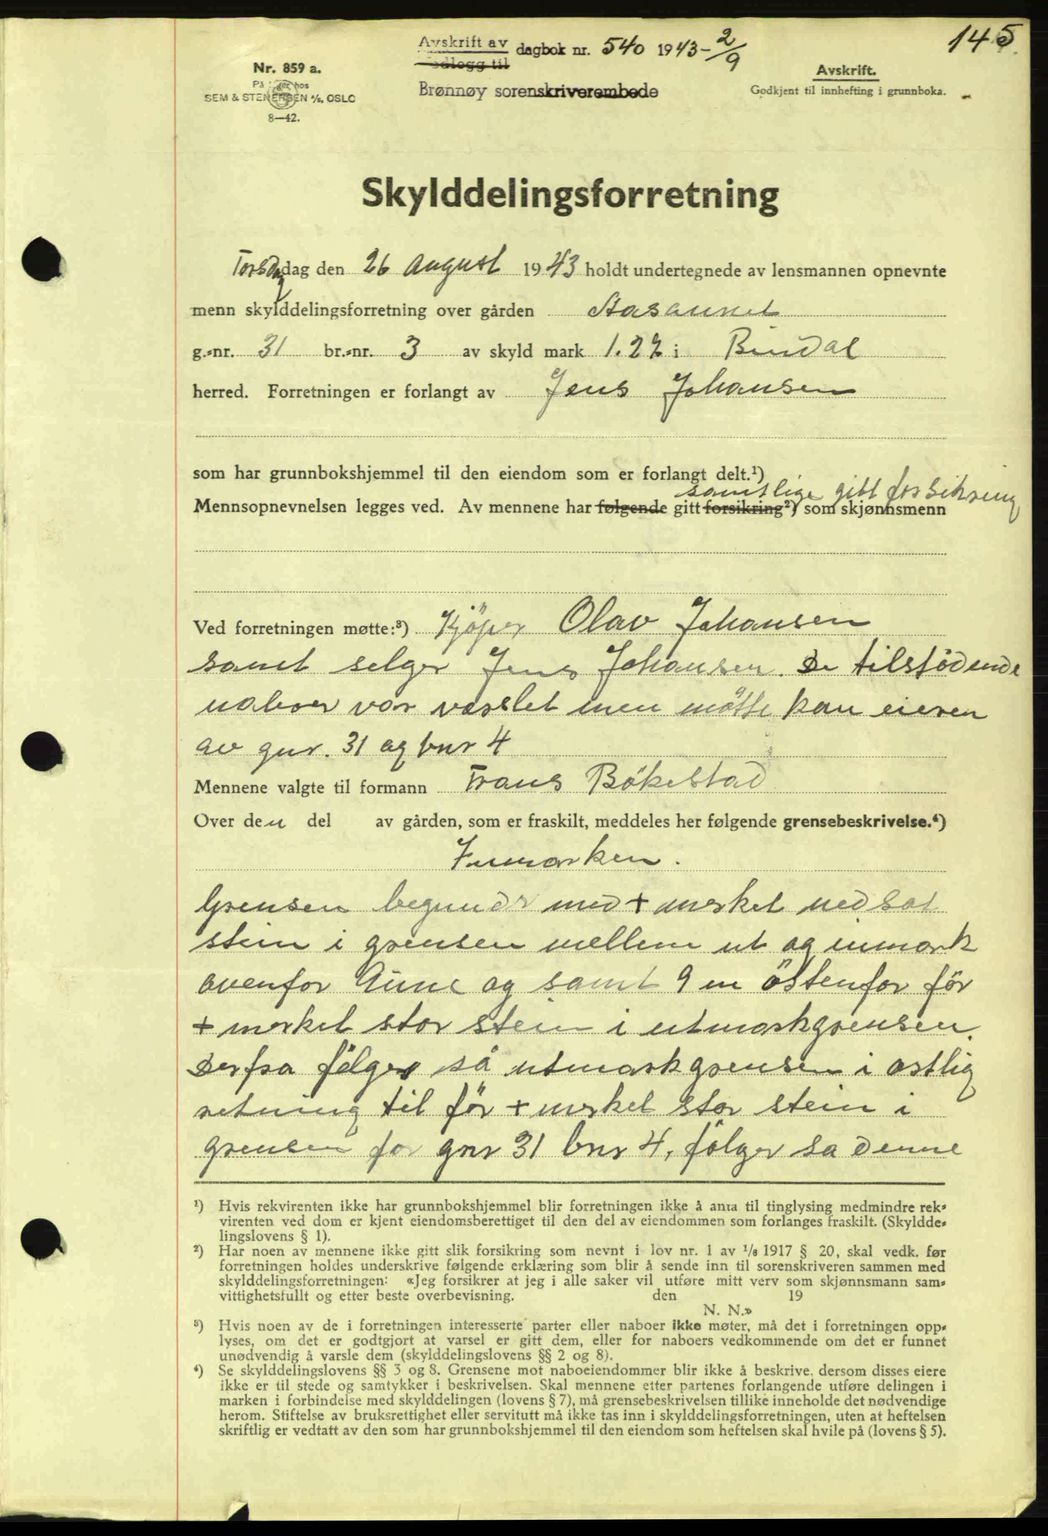 145
Avskrift av dagbok nr. 540 1943 - 2/9
vedlegg til
Brønnøy sorenskriverembede
Nr. 859 a.
På lager hos
SEM & STENERSEN A/S, OSLO
8—42.
Avskrift.
Godkjent til innhefting i grunnboka.
Skylddelingsforretning
Torsdag dag den 26 august 1943 holdt undertegnede av lensmannen opnevnte
menn skylddelingsforretning over gården
g.-nr. 31 br.-nr. 3 av skyld mark 1.27 i Bindal
herred. Forretningen er forlangt av Jens Johansen
som har grunnbokshjemmel til den eiendom som er forlangt delt.¹)
samtlige gitt forsikring
Mennsopnevnelsen legges ved. Av mennene har følgende gitt forsikring²) som skjønnsmenn
Ved forretningen møtte:³) Kjöper Olav Johansen
samt selger Jens Johansen. De tilstödende
naboer var varslet men mötte kan eieren
av gnr. 31 og bnr 4
Mennene valgte til formann Frans Bökestad
Over den del av gården, som er fraskilt, meddeles her følgende grensebeskrivelse.⁴)
Inmarken.
Grensen begynder med + merket nedsat
stein i grensen mellem ut og inmark
ovenfor Aune og samt 9 m östenfor för
+ merket stor stein i utmarkgrensen.
Derfra fölger så utmarkgrensen i ostlig
retning til för + merket stor stein i
grensen for gnr 31 bnr 4, fölger sa denne
¹) Hvis rekvirenten ikke har grunnbokshjemmel blir forretningen ikke å anta til tinglysing medmindre rek-
virenten ved dom er kjent eiendomsberettiget til den del av eiendommen som forlanges fraskilt. (Skyldde-
lingslovens § 1).
²) Har noen av mennene ikke gitt slik forsikring som nevnt i lov nr. 1 av 1/6 1917 § 20, skal vedk. før
forretningen holdes underskrive følgende erklæring som blir å sende inn til sorenskriveren sammen med
skylddelingsforretningen: «Jeg forsikrer at jeg i alle saker vil utføre mitt verv som skjønnsmann sam-
vittighetsfullt og etter beste overbevisning. den 19
N. N.»
³) Hvis noen av de i forretningen interesserte parter eller naboer ikke møter, må det i forretningen opp-
lyses, om det er godtgjort at varsel er gitt dem, eller for naboers vedkommende om det er funnet
unødvendig å varsle dem (skylddelingslovens §§ 2 og 8).
⁴) Se skylddelingslovens §§ 3 og 8. Grensene mot naboeiendommer blir ikke å beskrive, dersom disses eiere
ikke er til stede og samtykker i beskrivelsen. Skal mennene etter partenes forlangende utføre delingen i
marken i forbindelse med skylddelingen (lovens § 7), må grensebeskrivelsen tillike inneholde det nødvendige
herom. Stiftelse av bruksrettighet eller servitutt må ikke tas inn i skylddelingsforretningen, uten at heftelsen
skriftlig er vedtatt av den som har grunnbokshjemmel til den eiendom som heftelsen skal hvile på (lovens § 5).